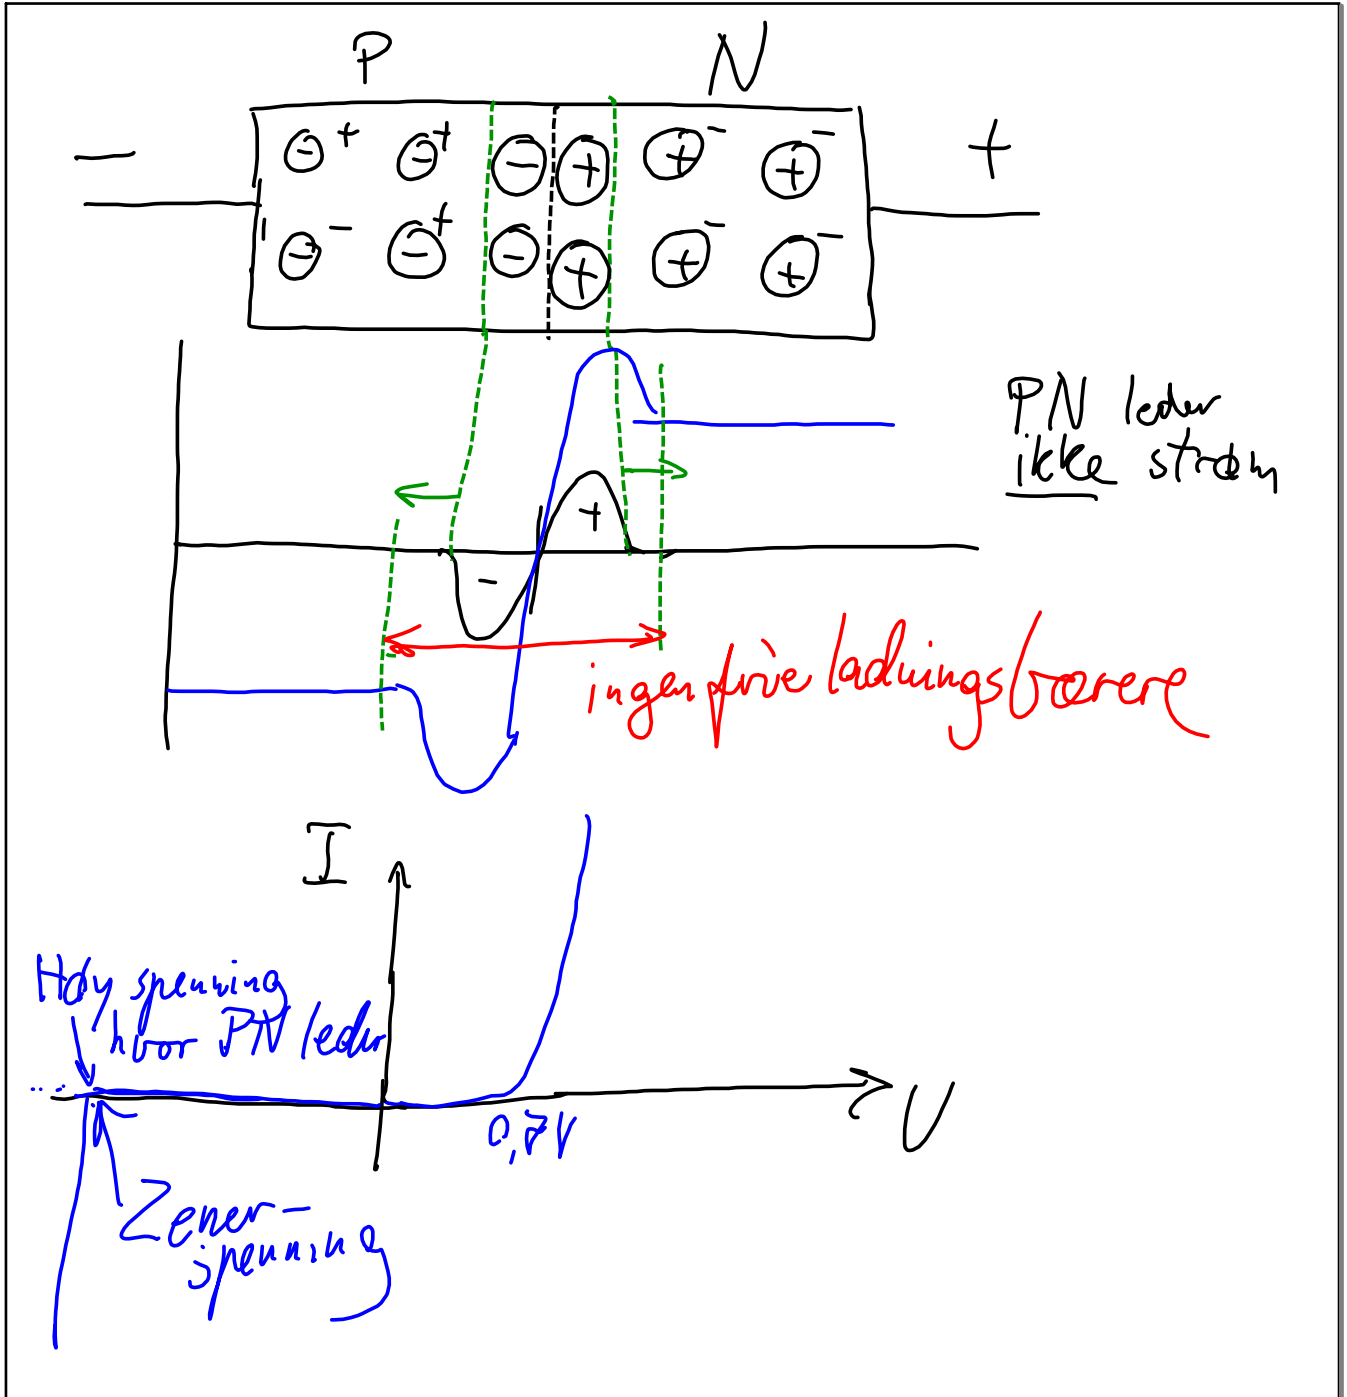 P N
- +
⊖+ ⊖+ ⊖ ⊕ ⊕- ⊕-
⊖- ⊖+ ⊖ ⊕ ⊕- ⊕-
PN leder
ikke strøm
+
-
ingen frie ladningsbærere
I
Høy spenning
hvor PN leder
0,7V
U
Zener-
spenning